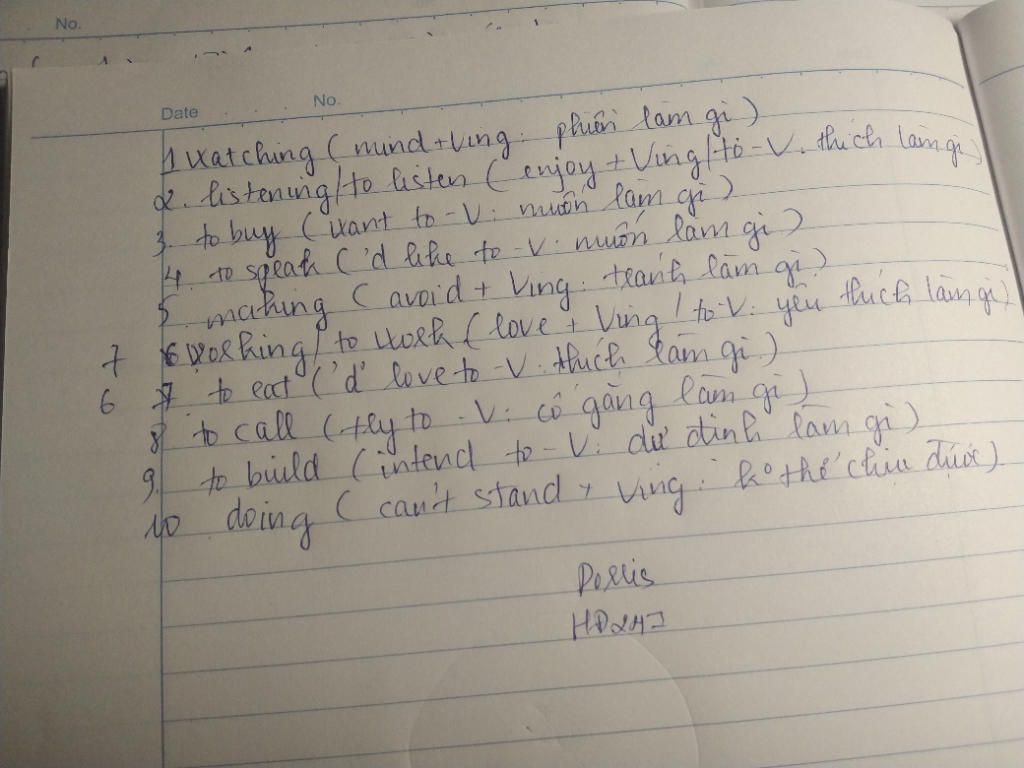 No.
Date No.
1 watching (mind + Ving: phiền làm gì)
2. listening/to listen (enjoy + Ving/to-V: thích làm gì)
3. to buy (want to-V: muốn làm gì)
4 to speak ('d like to-V: muốn làm gì)
5. making (avoid + Ving: tránh làm gì)
7 6 working/to work (love + Ving/to-V: yêu thích làm gì)
6 7 to eat ('d love to-V: thích làm gì)
8 to call (try to-V: cố gắng làm gì)
9. to build (intend to-V: dự định làm gì)
10 doing (can't stand + Ving: ko thể chịu được)
Dorris
HD247